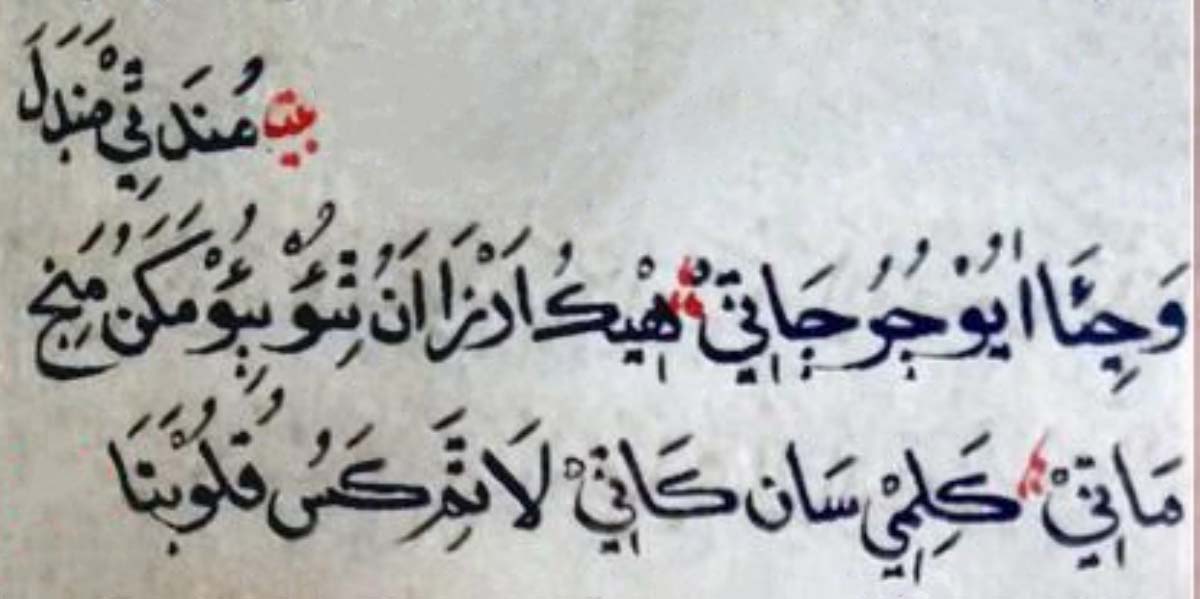 بيت مُندَ تِيْ مَنْدَلَ
وَجِئَا اُيُوْ جُرُ جَاتِيْ هِيْكُ اَرْزَا اَنُ تِئَوْ بِئَوْ مَكَنُ مُنِجَ
مَاتِيْ كَلِمِيْ سَان كَاتِيْ لَا تِمَّ كَسُ قُلُوْبَنَا